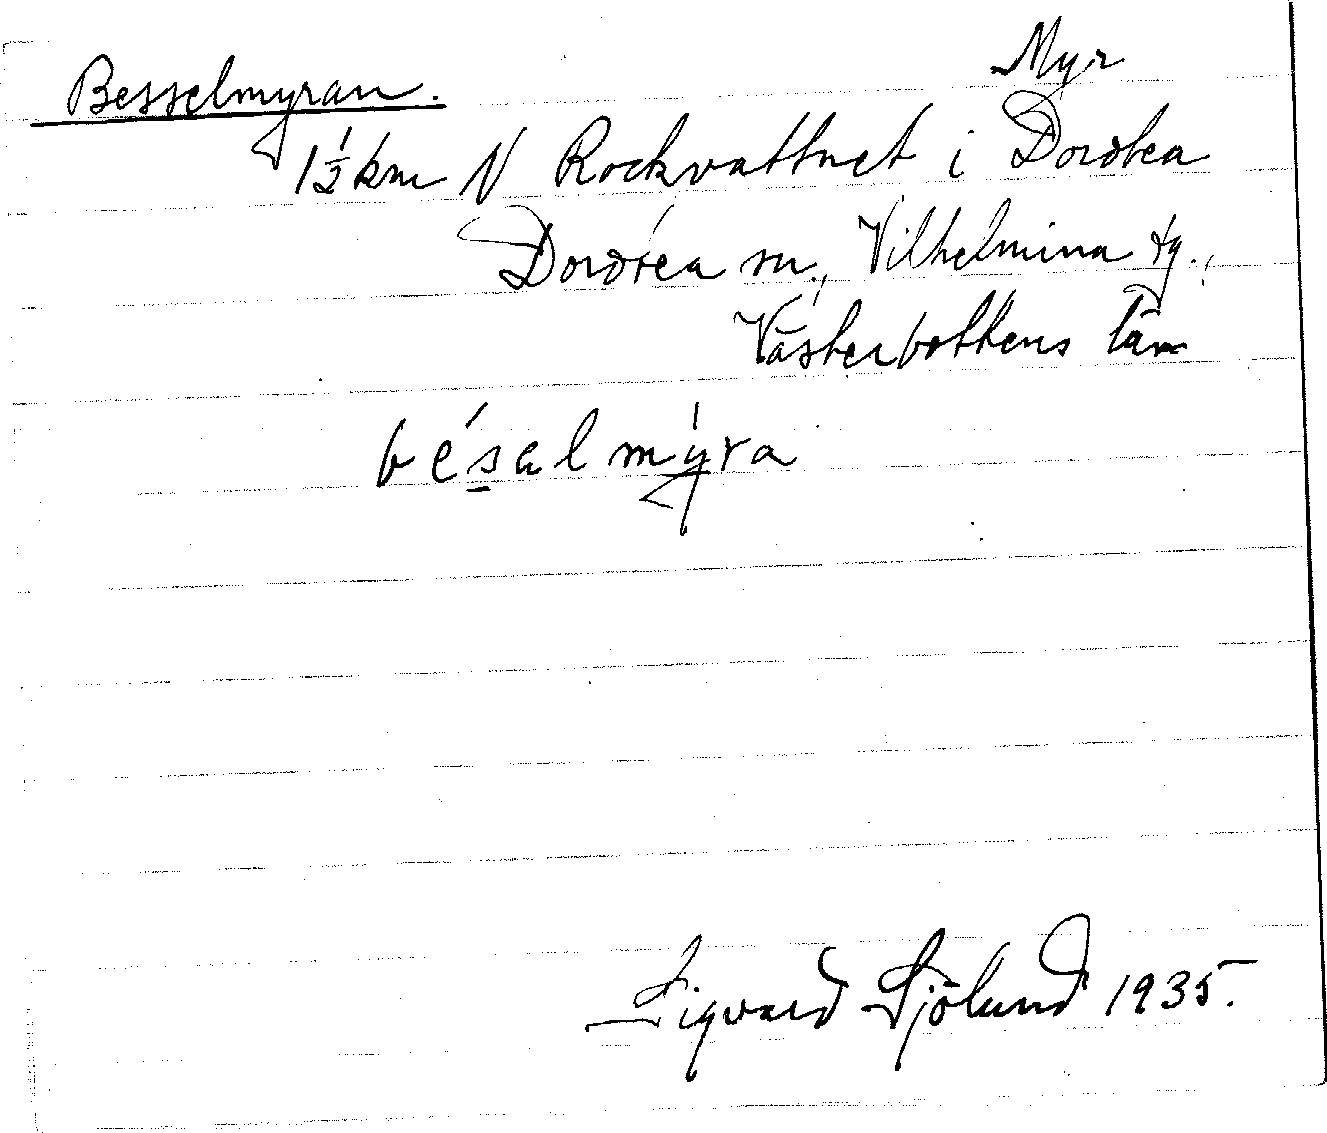 Besselmyran.
Myr
1½ km N Rockvattnet i Dorotea
Dorotea sn., Vilhelmina tg.,
Västerbottens län
bésalmýra
Sigvard Sjölund 1935.